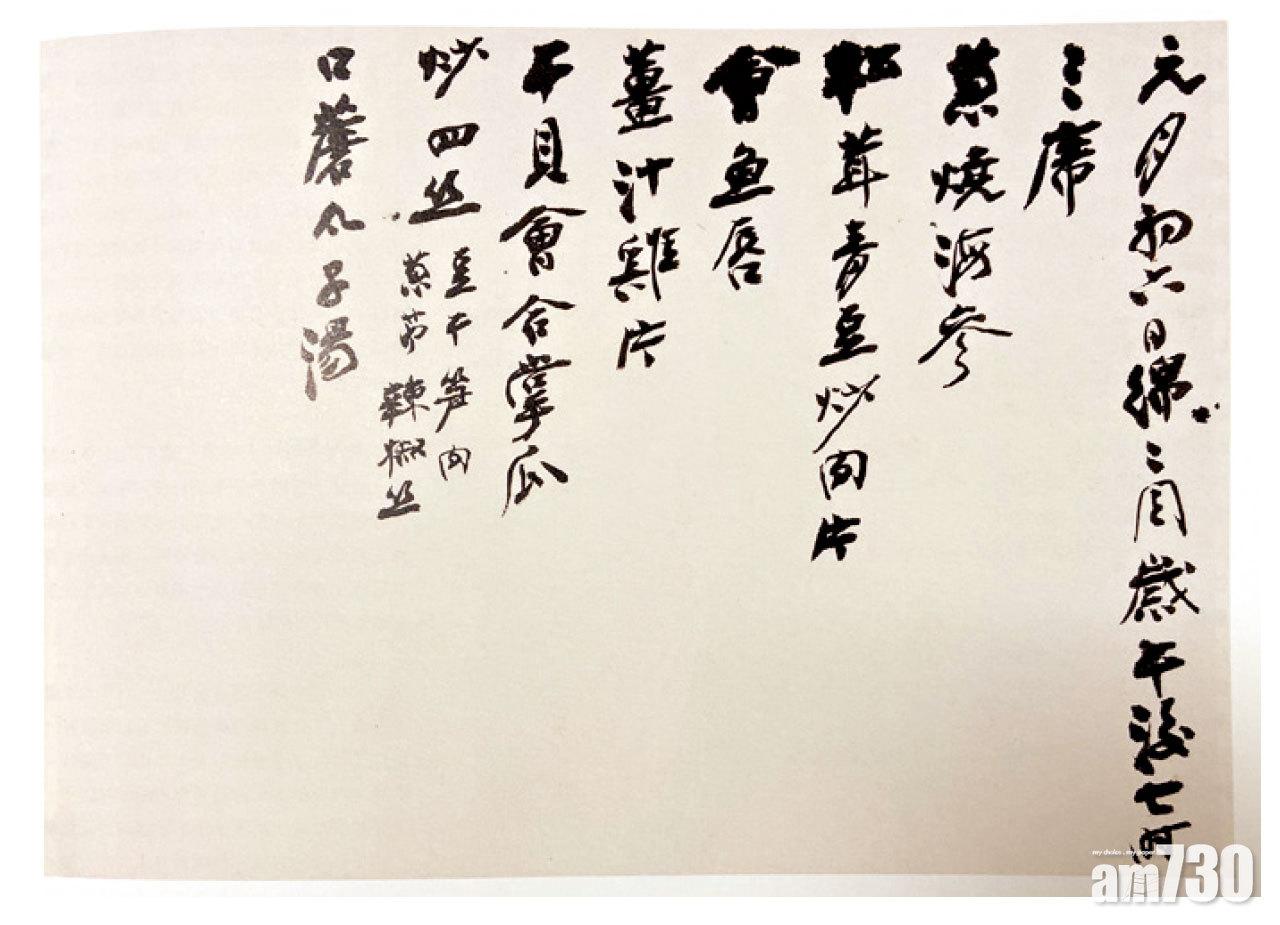 元月初六日綿〻周歲午後七时
二席
蔥燒海參
松茸青豆炒肉片
會魚唇
薑汁雞片
干貝會合掌瓜
炒四丝
豆干笋肉
蔥芽辣椒丝
口蘑丸子湯
my choice . my paper
am730